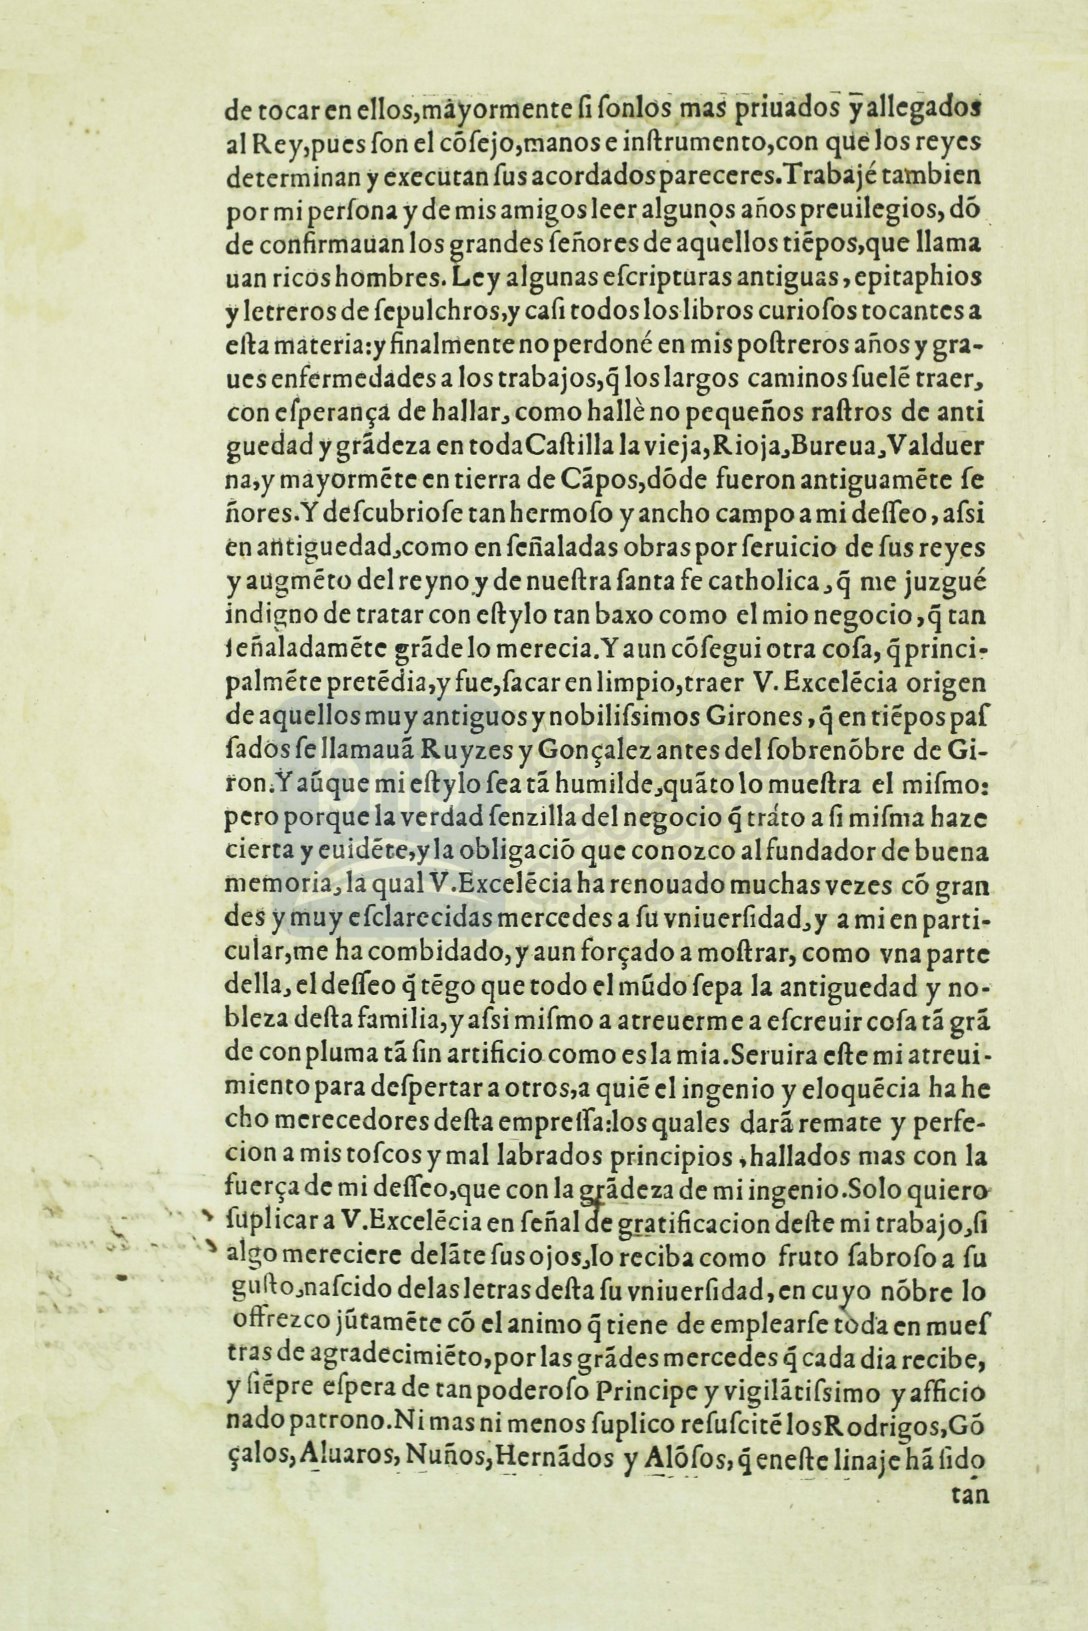 de tocar en ellos,mayormente ſi ſonlos mas priuados y allegados
al Rey,pues ſon el cõſejo,manos e inſtrumento,con que los reyes
determinan y executan ſus acordados pareceres.Trabajé tambien
por mi perſona y de mis amigos leer algunos años preuilegios, dõ
de confirmauan los grandes ſeñores de aquellos tiẽpos,que llama
uan ricos hombres. Ley algunas eſcripturas antiguas, epitaphios
y letreros de ſepulchros,y caſi todos los libros curioſos tocantes a
eſta materia:y finalmente no perdoné en mis poſtreros años y gra-
ues enfermedades a los trabajos,q̃ los largos caminos ſuelẽ traer,
con eſperança de hallar, como hallè no pequeños raſtros de anti
guedad y grãdeza en toda Caſtilla la vieja, Rioja, Bureua, Valduer
na,y mayormẽte en tierra de Cãpos,dõde fueron antiguamẽte ſe
ñores.Y deſcubrioſe tan hermoſo y ancho campo a mi deſſeo, aſsi
en antiguedad,como en ſeñaladas obras por ſeruicio de ſus reyes
y augmẽto del reyno y de nueſtra ſanta fe catholica, q̃ me juzgué
indigno de tratar con eſtylo tan baxo como el mio negocio,q̃ tan
ſeñaladamẽte grãde lo merecia.Y aun cõſegui otra coſa, q̃ princi-
palmẽte pretẽdia,y fue,ſacar en limpio,traer V. Excelẽcia origen
de aquellos muy antiguos y nobiliſsimos Girones, q̃ en tiẽpos paſ
ſados ſe llamauã Ruyzes y Gonçalez antes del ſobrenõbre de Gi-
ron.Y aũque mi eſtylo ſea tã humilde,quãto lo mueſtra el miſmo:
pero porque la verdad ſenzilla del negocio q̃ tráto a ſi miſma haze
cierta y euidẽte,y la obligaciõ que conozco al fundador de buena
memoria, la qual V.Excelẽcia ha renouado muchas vezes cõ gran
des y muy eſclarecidas mercedes a ſu vniuerſidad,y a mi en parti-
cular,me ha combidado,y aun forçado a moſtrar, como vna parte
della, el deſſeo q̃ tẽgo que todo el mũdo ſepa la antiguedad y no-
bleza deſta familia,y aſsi miſmo a atreuerme a eſcreuir coſa tã grã
de con pluma tã ſin artificio como es la mia.Seruira eſte mi atreui-
miento para deſpertar a otros,a quiẽ el ingenio y eloquẽcia ha he
cho merecedores deſta empreſſa:los quales darã remate y perfe-
cion a mis toſcos y mal labrados principios,hallados mas con la
fuerça de mi deſſeo,que con la grãdeza de mi ingenio.Solo quiero
ſuplicar a V.Excelẽcia en ſeñal de gratificacion deſte mi trabajo,ſi
algo mereciere delãte ſus ojos,lo reciba como fruto ſabroſo a ſu
guſto,naſcido de las letras deſta ſu vniuerſidad, en cuyo nõbre lo
offrezco jũtamẽte cõ el animo q̃ tiene de emplearſe toda en mueſ
tras de agradecimiẽto,por las grãdes mercedes q̃ cada dia recibe,
y ſiẽpre eſpera de tan poderoſo Principe y vigilãtiſsimo y afficio
nado patrono.Ni mas ni menos ſuplico reſuſcitẽ los Rodrigos,Gõ
çalos, Aluaros, Nuños, Hernãdos y Alõſos,q̃ eneſte linaje hã ſido
tan